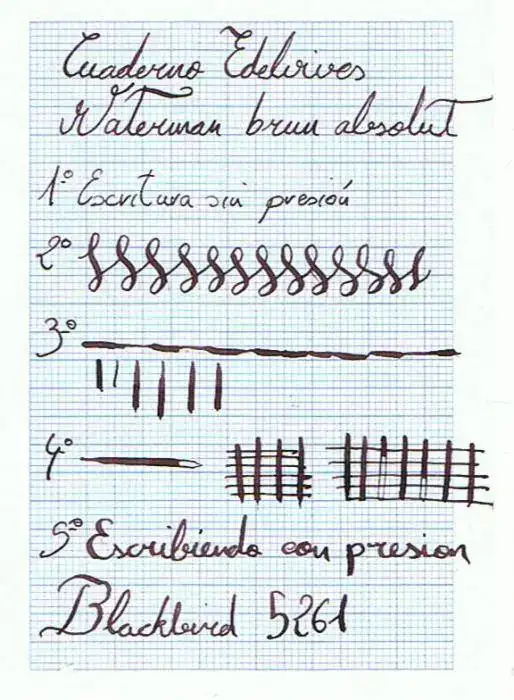 Cuaderno Edelvives
Waterman brun absolut
1º Escritura sin presión
2º
3º
4º
5º Escribiendo con presion
Blackbird 5261